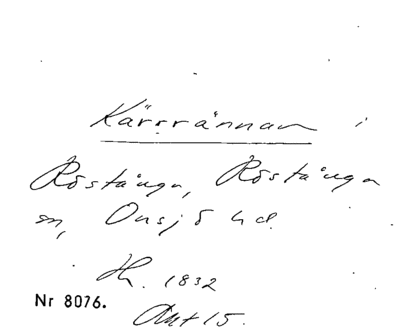 Kärrännan i
Röstånga, Röstånga
sn, Onsjö hd.
H. 1832
Nr 8076.
Akt 15.